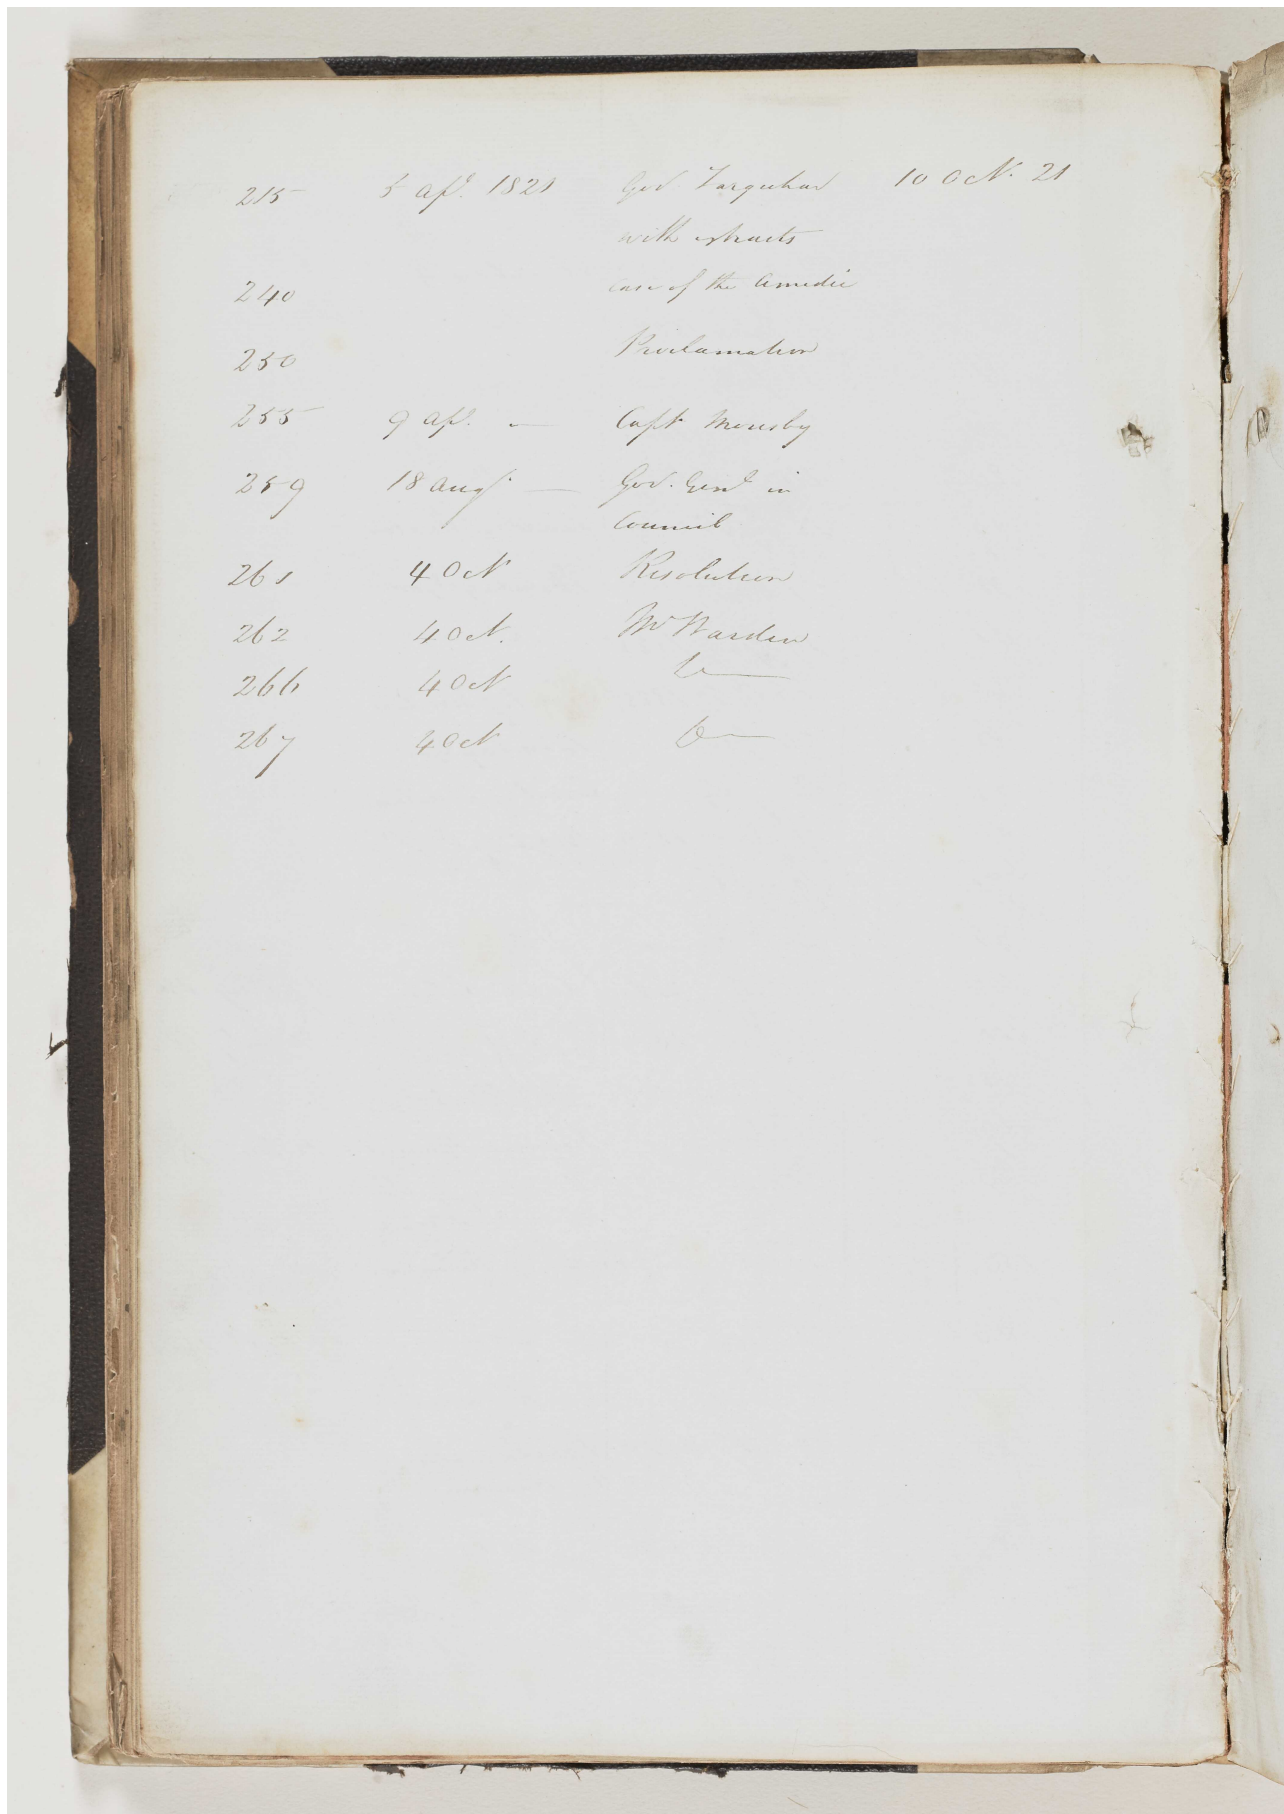 215 5 Apl. 1821 Gov. Farquhar 10 Oct. 21
with extracts
240 case of the Amedie
250 Proclamation
255 9 Apl. — Capt Moresby
259 18 Augt — Gov. Genl in
Council
261 4 Oct Resolution
262 4 Oct. Mr Warden
266 4 Oct Do —
267 4 Oct Do —